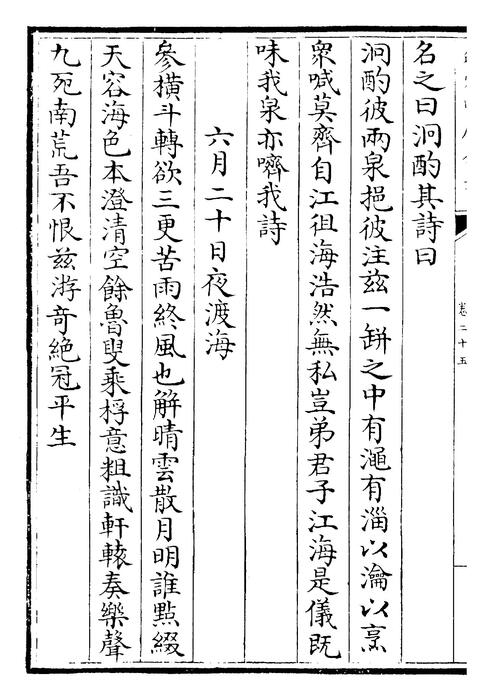 名之曰泂酌其詩曰
泂酌彼兩泉挹彼注兹一缾之中有澠有淄以瀹以烹
衆喊莫齊自江徂海浩然無私豈弟君子江海是儀既
味我泉亦嚌我詩
六月二十日夜渡海
參横斗轉欲三更苦雨終風也解晴雲散月明誰點綴
天容海色本澄清空餘魯叟乘桴意粗識軒轅奏樂聲
九死南荒吾不恨兹游奇絶冠平生
卷二十五